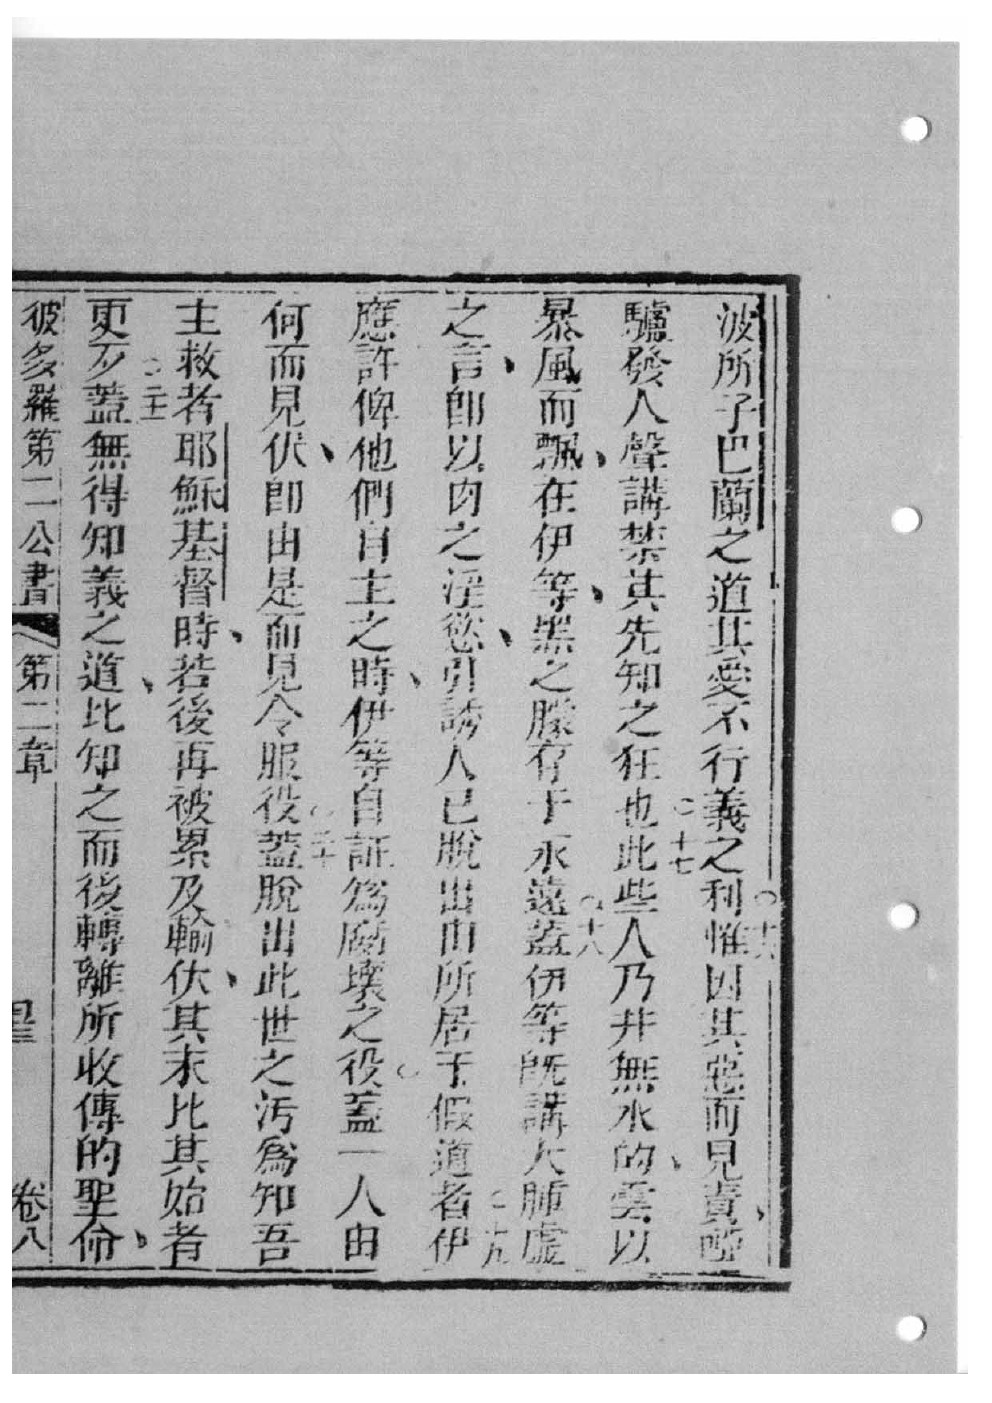 波所子巴蘭之道其愛不行義之利惟因其惡而見責啞
○十六
驢發人聲講禁其先知之狂也此些人乃井無水的雲以
○十七
暴風而飄在伊等黑之朦存于永遠蓋伊等既講大肿虛
○十八
之言卽以肉之淫慾引誘人已脫出由所居于假道者伊
○十九
應許俾他們自主之時伊等自証為腐壞之役蓋一人由
何而見伏卽由是而見令服役蓋脫出此世之汚為知吾
○二十
主救者耶穌基督時若後再被累及輸伏其末比其始者
更歹蓋無得知義之道比知之而後轉離所收傳的聖命
○二十一
彼多羅第二公書 第二章 卷八